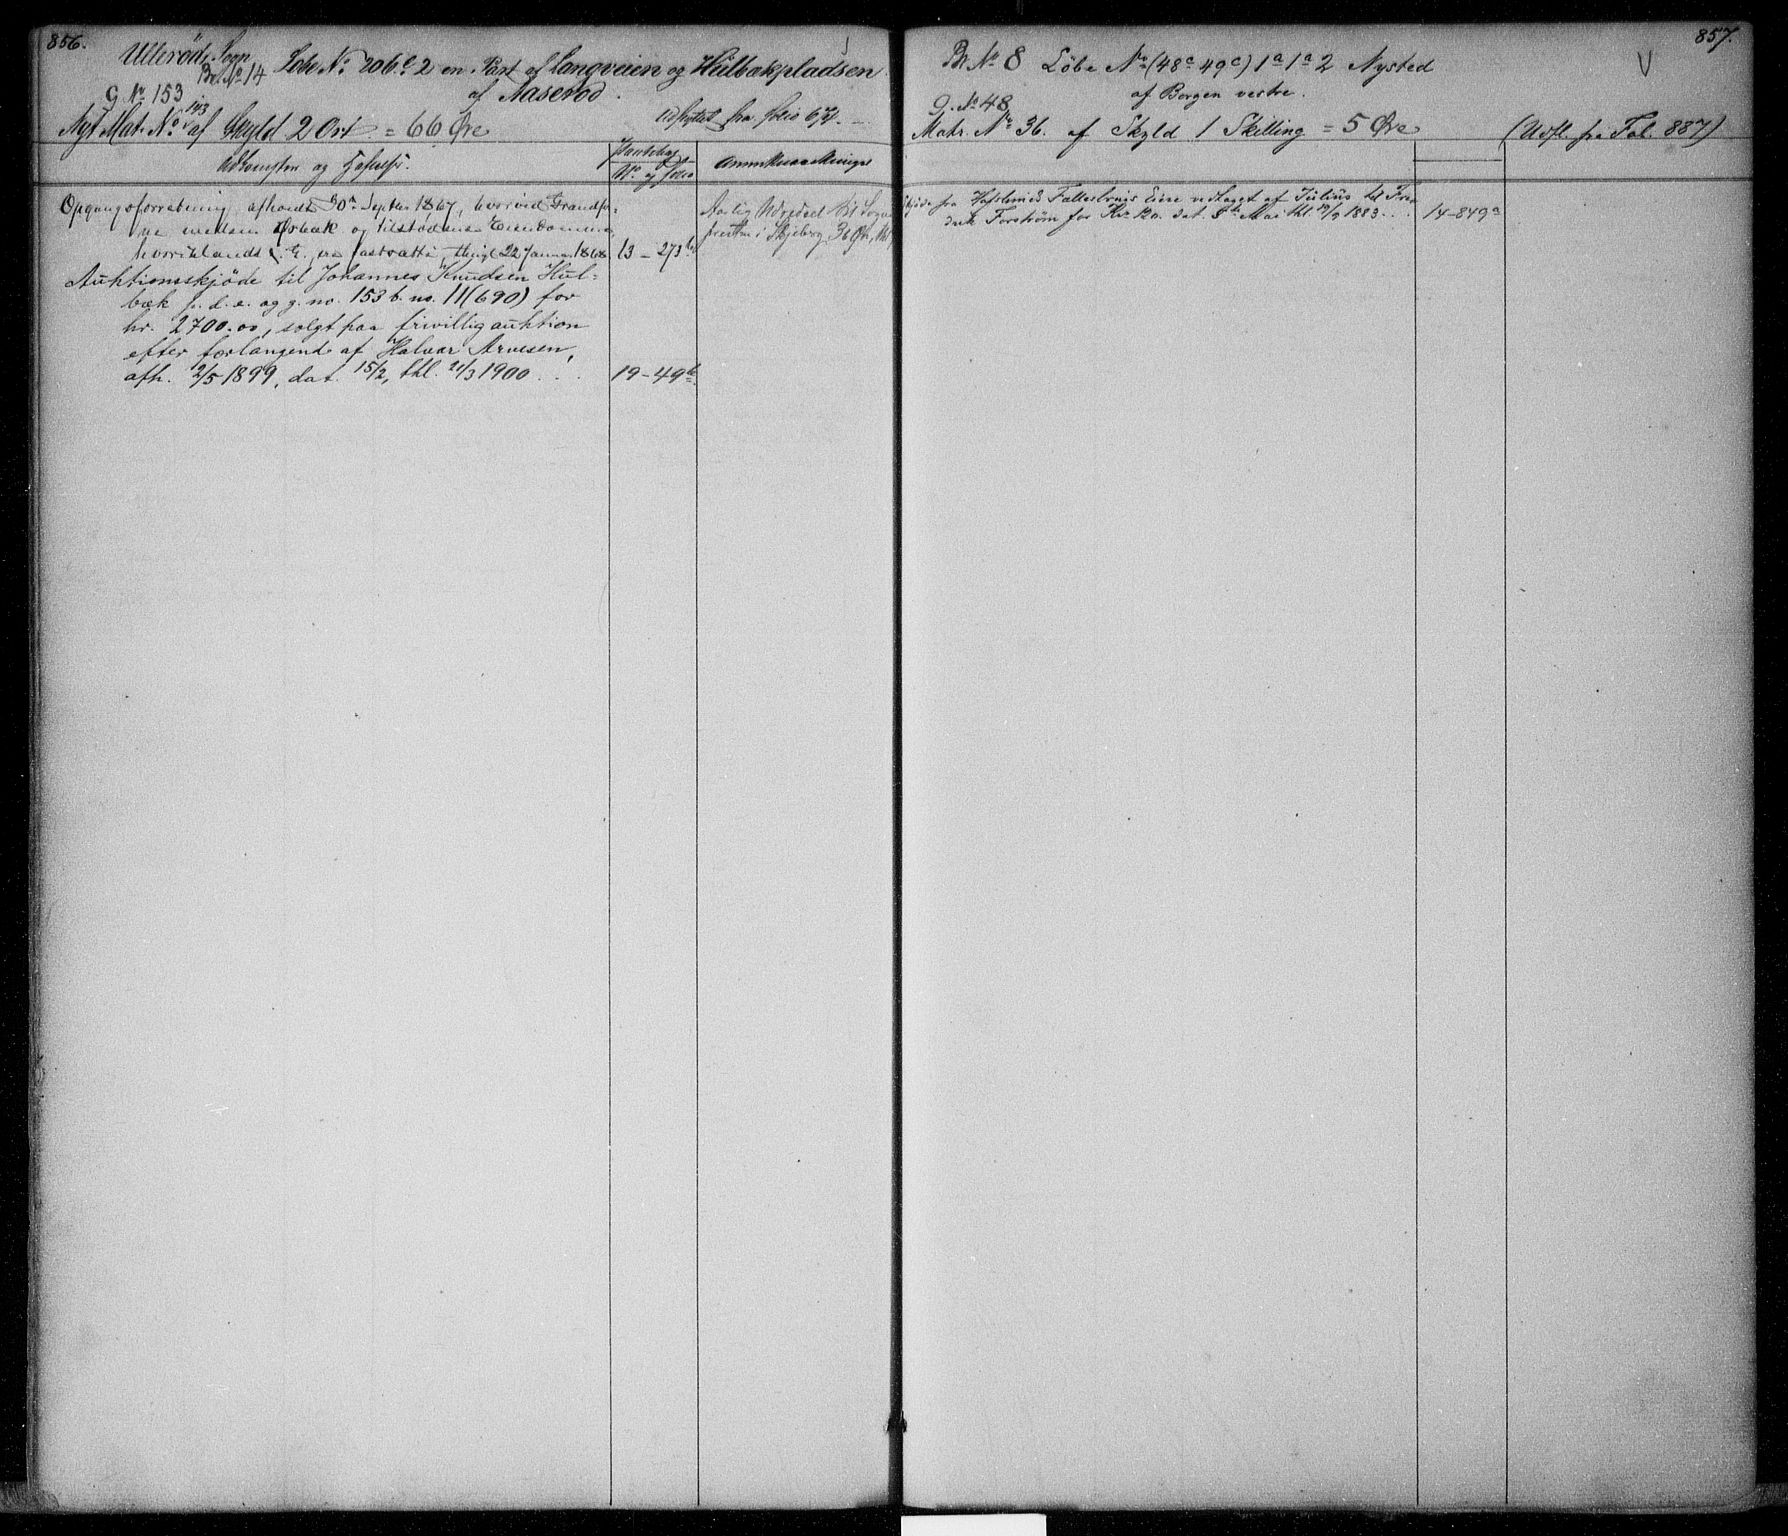 856.
Ullerød Sogn
Br. No 14
Løbe No 206 c 2 en Part af Langveien og Hulbækpladsen
G No 153
af Aaserød.
143
Nyt Mat. No af Skyld 2 Ort = 66 Øre
Udflyttet fra folio 672.
Adkomster og Hæftelser.
Pantebog
No og folio
Anmærkninger
Opgangsforretning afholdt 30te Septbr 1867, hvorved Grændser-
ne mellem Ørbæk og tilstødende Eiendomme,
hvoriblandt d. E., ere fastsatte, thingl 22 Januar 1868.
13 - 273 b
Aarlig Udredsel til Sogne-
præsten i Skjeberg 36 Øre,
Auktionsskjøde til Johannes Knudsen Hul-
bæk p. d. e. og g. no. 153 b. no. 11 (690) for
kr. 2700.00, solgt paa frivillig auktion
efter forlangende af Halvor Arvesen,
afh. 2/5 1899, dat. 15/2, thl. 21/3 1900 . . .
19 - 49 b
857.
Br No 8 Løbe No (48 a 49 c) 1 a 1 a 2 Nysted
af Borgen vestre.
G. No 48
Matr. No 36. af Skyld 1 Skilling = 5 Øre
(Udfl. fra Fol. 887)
Skjøde fra Hafslunds Fællesbrugs Eiere vedtaget af Julius til Fre-
drik Forstrøm for Kr. 120. dat. 5te Mai thl 19/9 1883 . . .
14 - 849 a